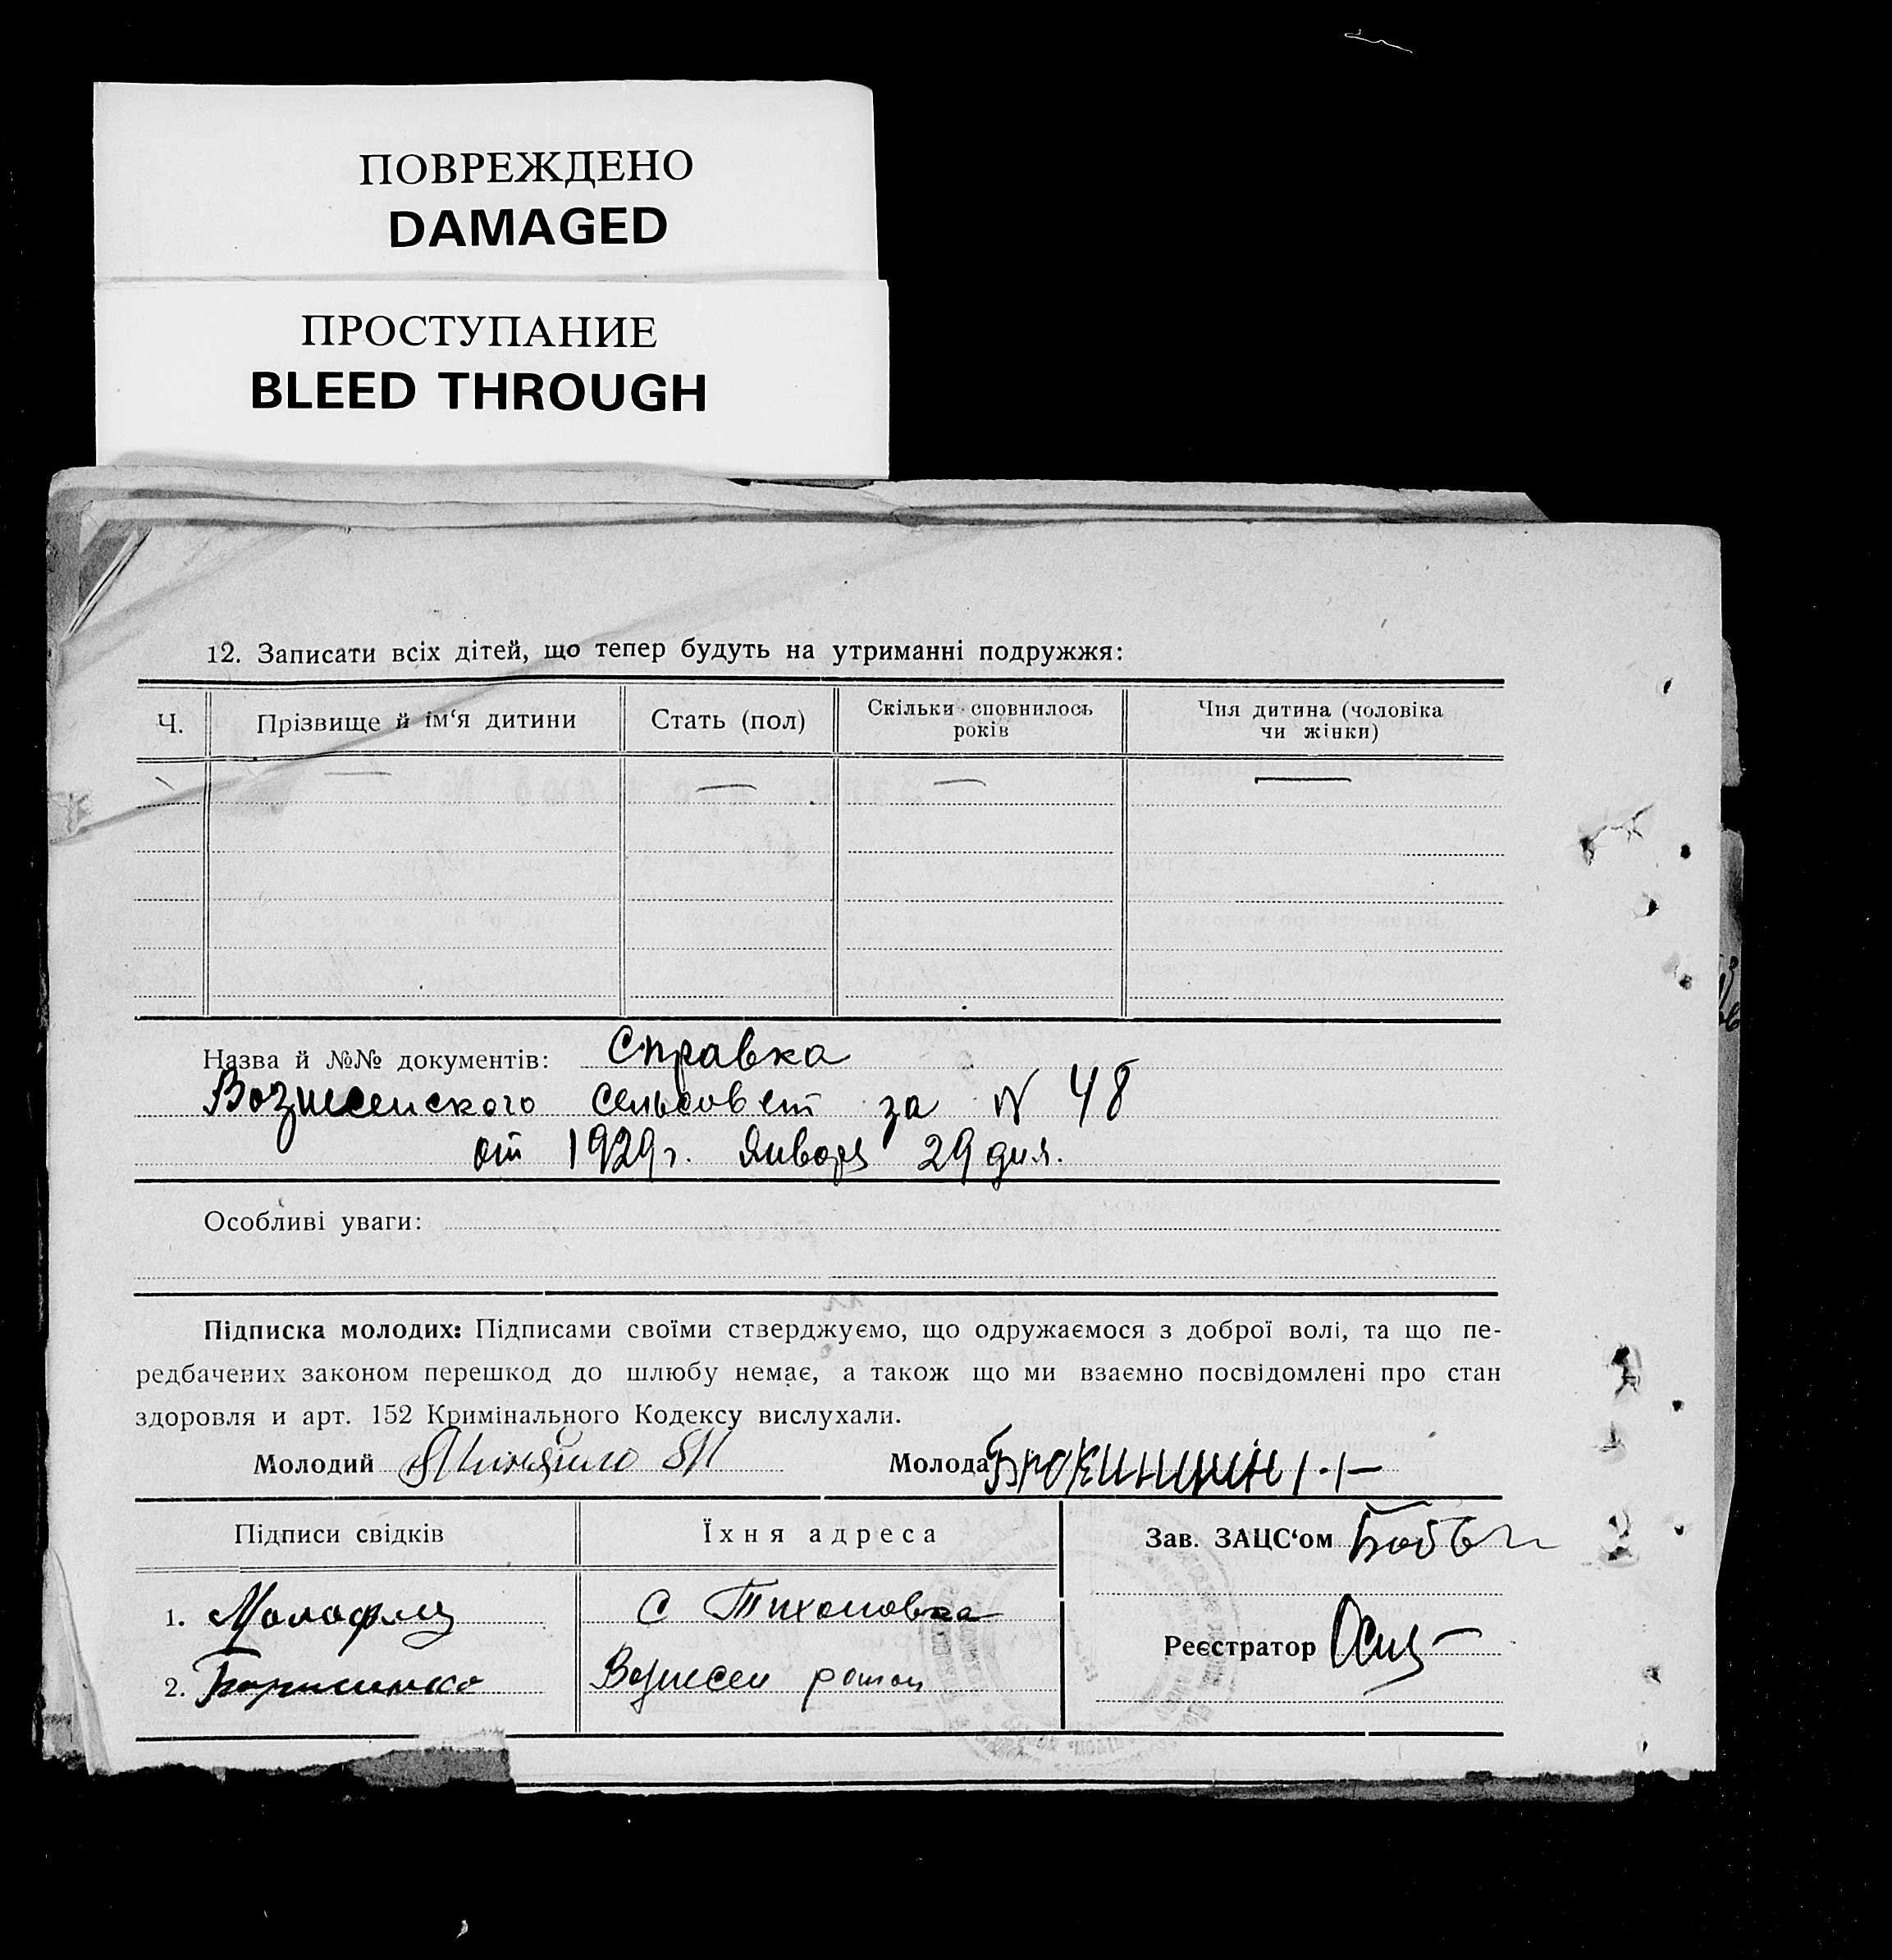 ПОВРЕЖДЕНО
DAMAGED
ПРОСТУПАНИЕ
BLEED THROUGH
12. Записати всіх дітей, що тепер будуть на утриманні подружжя:
Ч. Прізвище й ім‘я дитини Стать (пол) Скільки сповнилось років Чия дитина (чоловіка чи жінки)
Назва й №№ документів: Справка
Вознесенского сельсовет за № 48
от 1929 г. января 29 дня.
Особливі уваги:
Підписка молодих: Підписами своїми стверджуємо, що одружаємося з доброї волі, та що пе-
редбачених законом перешкод до шлюбу немає, а також що ми взаємно посвідомлені про стан
здоровля и арт. 152 Кримінального Кодексу вислухали.
Молодий Молода
Підписи свідків Їхня адреса Зав. ЗАЦС‘ом
1. С Тихоновка
Реєстратор
2. Борисенко Вознесен